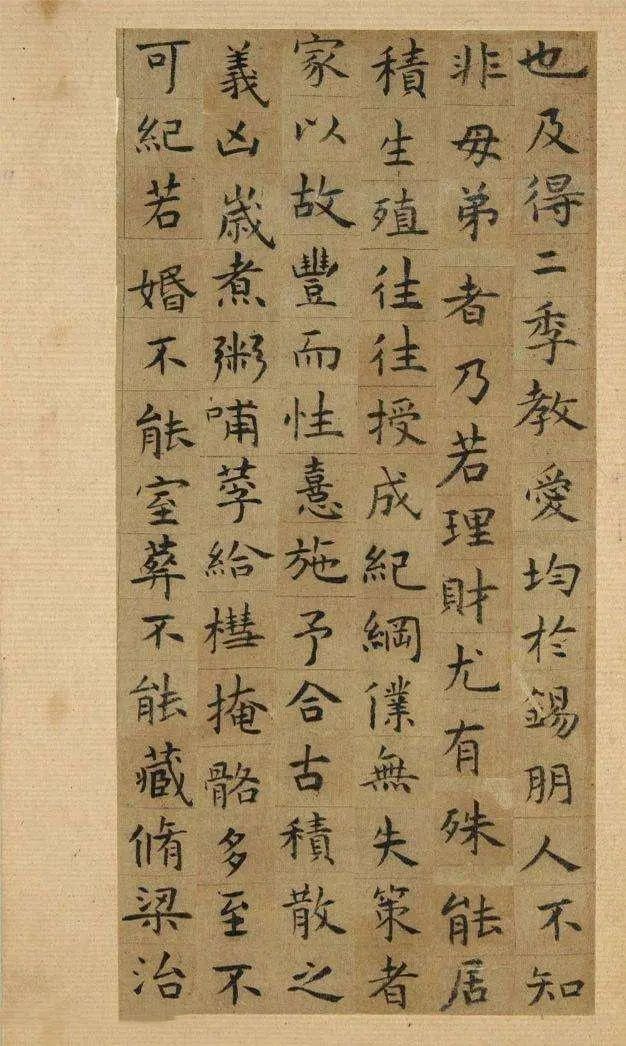 也及得二季教愛均於錫朋人不知
非毋弟者乃若理財尤有殊能居
積生殖往往授成紀綱僕無失策者
家以故豐而性憙施予合古積散之
義凶歲煮粥哺莩給槥掩骼多至不
可紀若婚不能室葬不能藏脩梁治